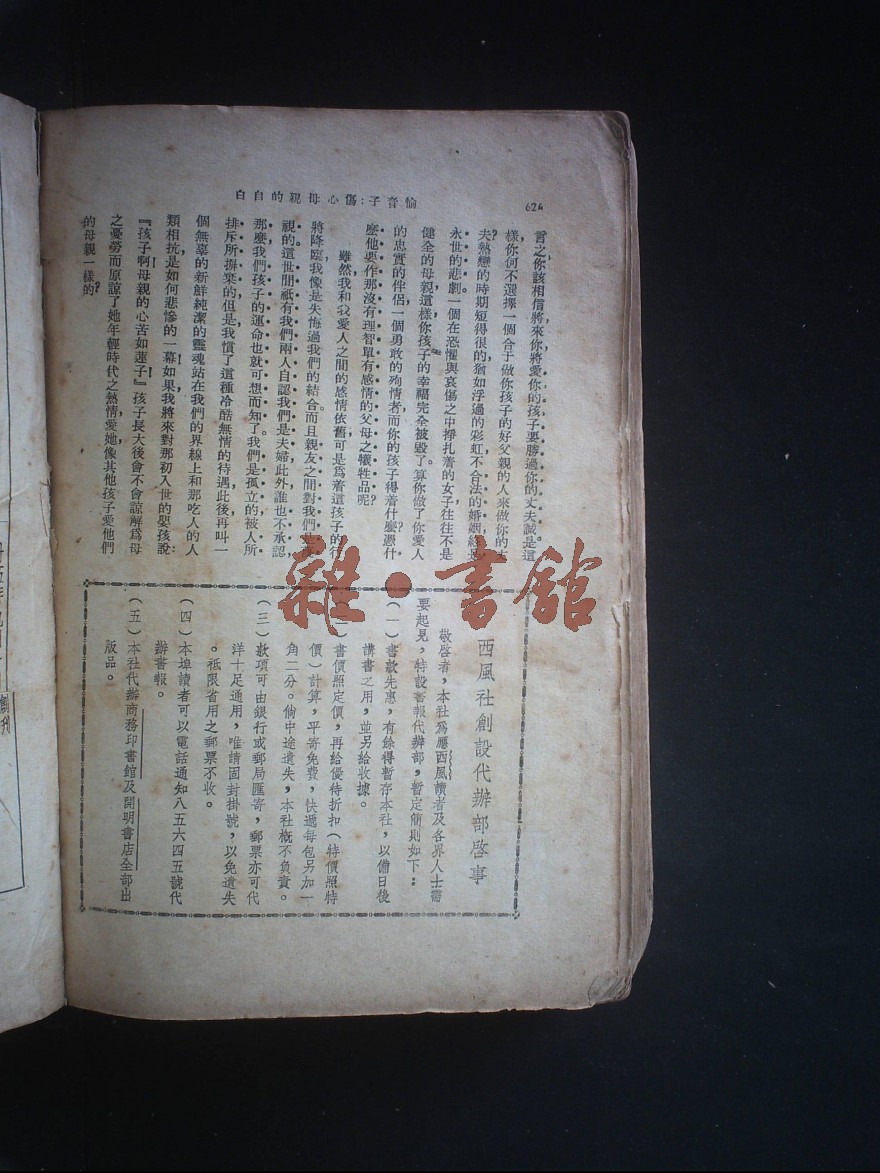 624
愉音子：傷心母親的自白
言之，你該相信將來你將愛你的孩子要勝過你的丈夫誠是這
樣，你何不選擇一個合于做你孩子的好父親的人來做你的丈
夫？熱戀的時期短得很的，猶如浮過的彩虹，不合法的婚姻，終是
永世的悲劇。一個在恐懼與哀傷之中掙扎着的女子往往不是
健全的母親，這樣你孩子的幸福完全被毀了。算你做了你愛人
的忠實的伴侶，一個勇敢的殉情者，而你的孩子得着什麼？憑什
麼他要作那沒有理智單有感情的父母之犧牲品呢？
雖然我和我愛人之間的感情依舊，可是爲着這孩子的行
將降臨，我像是失悔過我們的結合。而且親友之間對我們是
視的。這世間祇有我們兩人自認我們是夫婦，此外誰也不承認，
那麼我們孩子的運命也就可想而知了。我們是孤立的，被人所
排斥所摒棄的。但是我慣了這種冷酷無情的待遇，此後再叫一
個無辜的新鮮純潔的靈魂站在我們的界線上和那吃人的人
類相抗，是如何悲慘的一幕！如果我將來對那初入世的嬰孩說：
『孩子啊，母親的心苦如蓮子！』孩子長大後會不會諒解爲母
之憂勞而原諒了她年輕時代之熱情，愛她，像其他孩子愛他們
的母親一樣的？
西風社創設代辦部啓事
敬啓者，本社爲應西風讀者及各界人士需
要起見，特設書報代辦部，暫定簡則如下：
（一）書款先惠，有餘得暫存本社，以備日後
購書之用，並另給收據。
（二）書價照定價，再給優待折扣（特價照特
價）計算，平寄免費，快遞每包另加一
角二分。倘中途遺失，本社槪不負責。
（三）款項可由銀行或郵局匯寄，郵票亦可代
洋十足通用，唯請固封掛號，以免遺失
。祇限省用之郵票不收。
（四）本埠讀者可以電話通知八五六四五號代
辦書報。
（五）本社代辦商務印書館及開明書店全部出
版品。
雜·書館